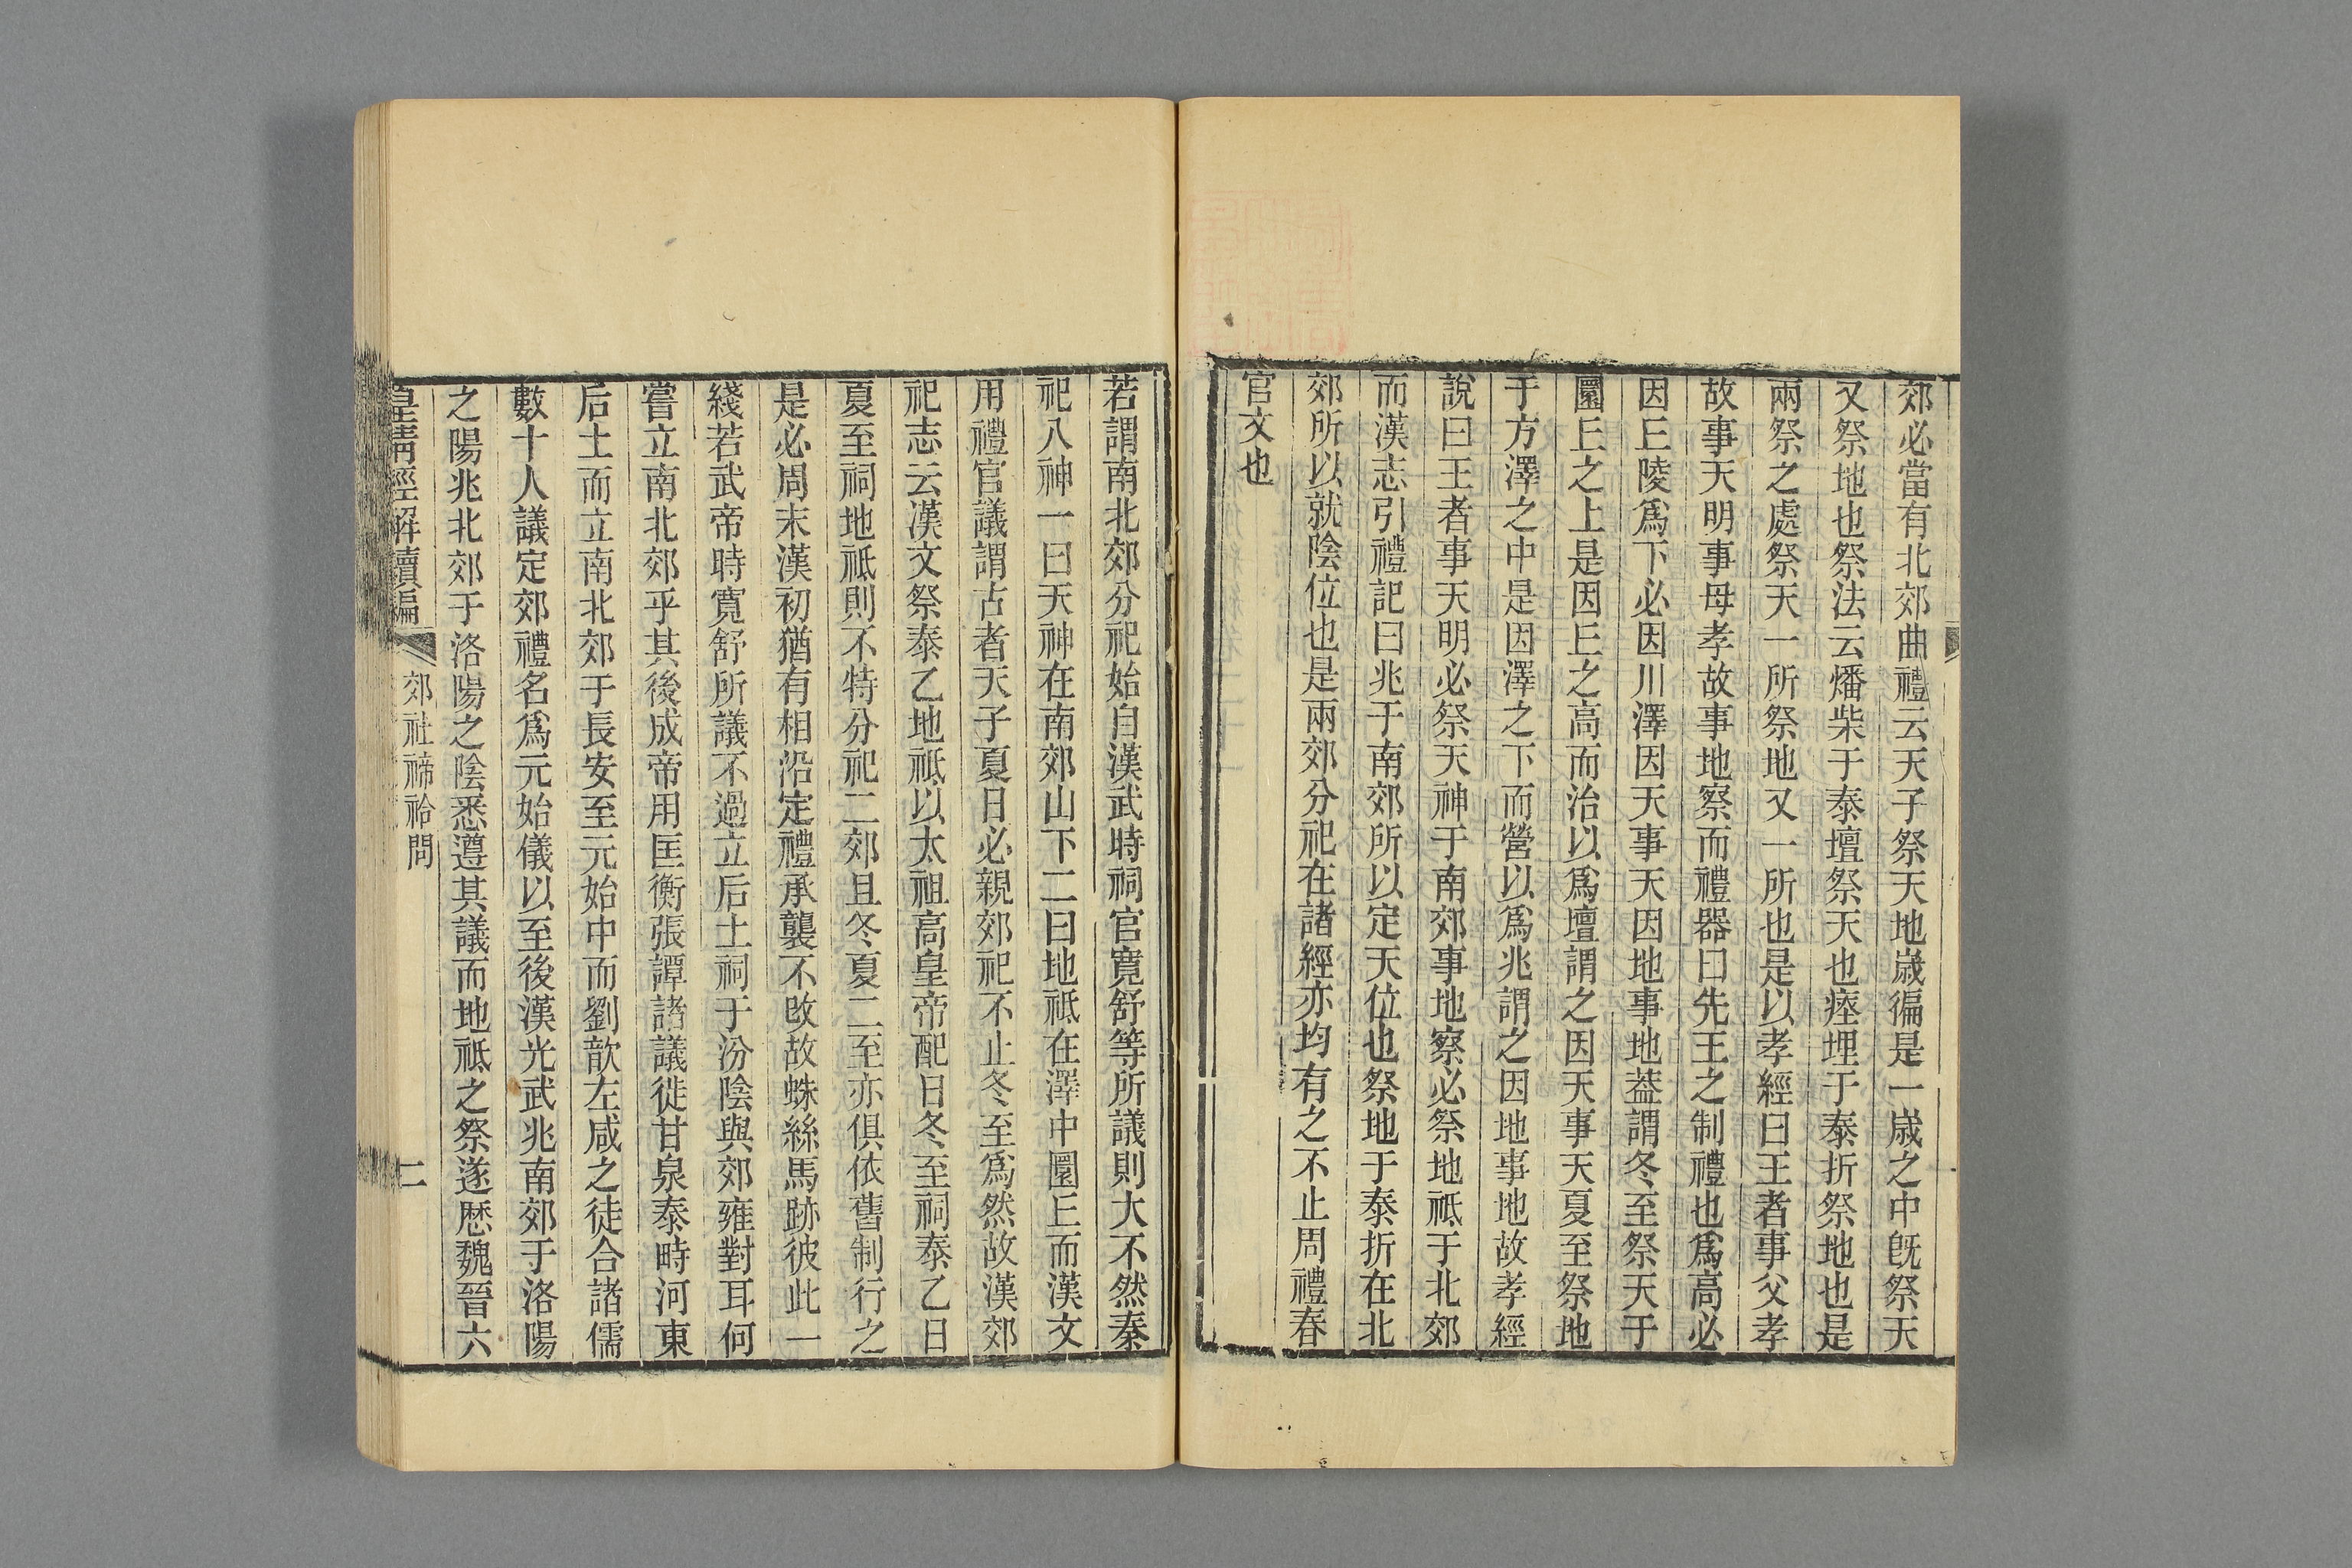 郊必當有北郊曲禮云天子祭天地歲徧是一歲之中旣祭天
又祭地也祭法云燔柴于泰壇祭天也瘞埋于泰折祭地也是
兩祭之處祭天一所祭地又一所也是以孝經曰王者事父孝
故事天明事母孝故事地察而禮器曰先王之制禮也爲高必
因𠀉陵爲下必因川澤因天事天因地事地葢謂冬至祭天于
圜𠀉之上是因𠀉之高而治以爲壇謂之因天事天夏至祭地
于方澤之中是因澤之下而營以爲兆謂之因地事地故孝經
說曰王者事天明必祭天神于南郊事地察必祭地祗于北郊
而漢志引禮記曰兆于南郊所以定天位也祭地于泰折在北
郊所以就陰位也是兩郊分祀在諸經亦均有之不止周禮春
官文也
若謂南北郊分祀始自漢武時祠官寬舒等所議則大不然秦
祀八神一曰天神在南郊山下二曰地祗在澤中圜𠀉而漢文
用禮官議謂古者天子夏日必親郊祀不止冬至爲然故漢郊
祀志云漢文祭泰乙地祗以太祖高皇帝配日冬至祠泰乙日
夏至祠地祗則不特分祀二郊且冬夏二至亦俱依舊制行之
是必周末漢初猶有相沿定禮承襲不改故蛛絲馬跡彼此一
綫若武帝時寬舒所議不過立后土祠于汾陰與郊雍對耳何
嘗立南北郊乎其後成帝用匡衡張譚諸議徙甘泉泰畤河東
后土而立南北郊于長安至元始中而劉歆左咸之徒合諸儒
數十人議定郊禮名爲元始儀以至後漢光武兆南郊于洛陽
之陽兆北郊于洛陽之陰悉遵其議而地祗之祭遂歷魏晉六
皇清經解續編
郊社禘祫問
二